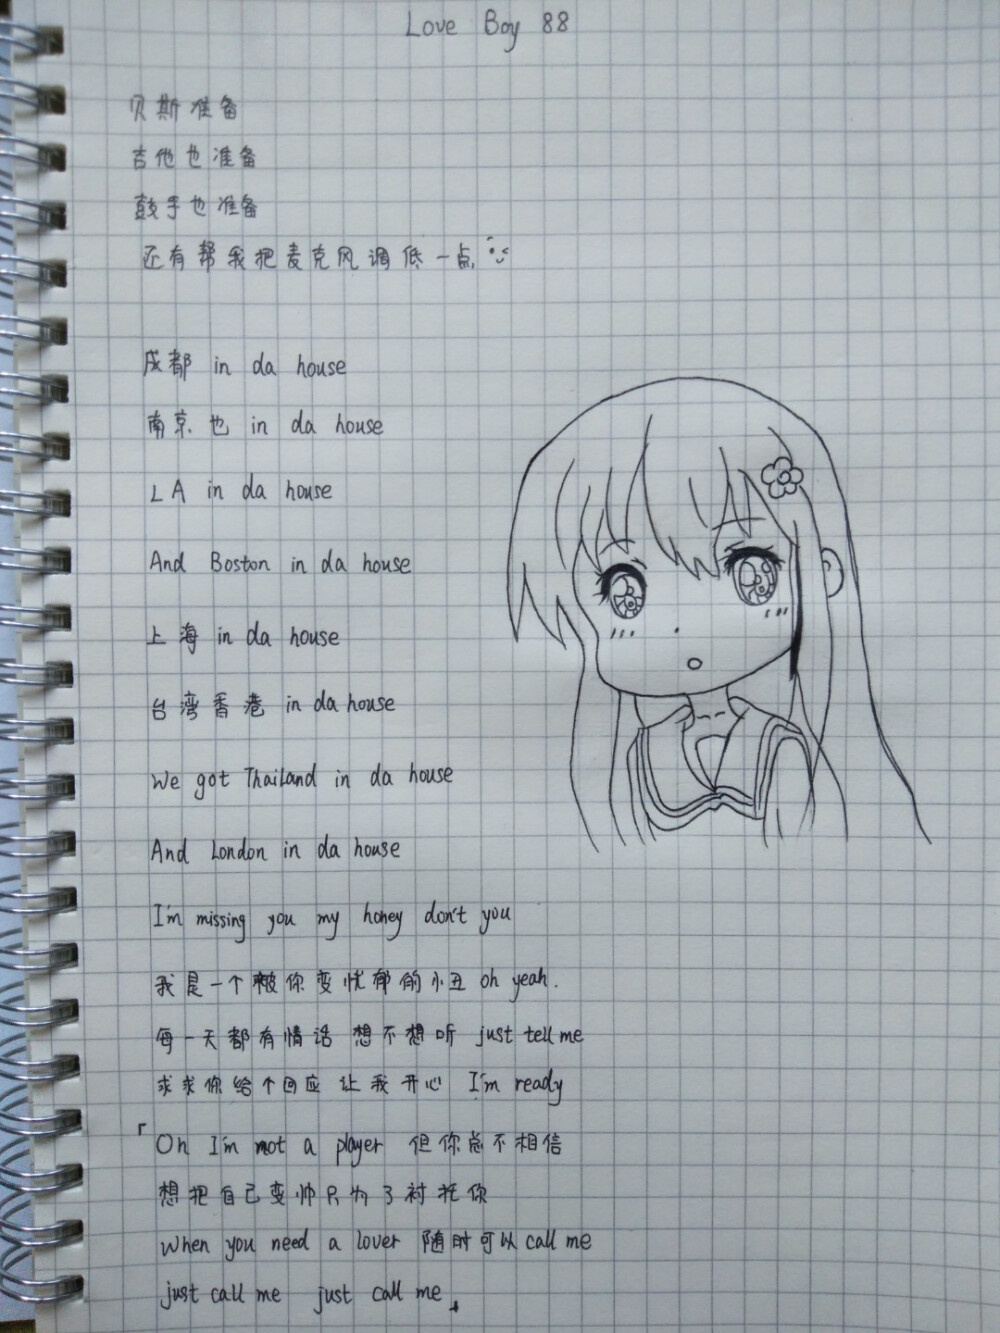 Love Boy 88
贝斯准备
吉他也准备
鼓手也准备
还有帮我把麦克风调低一点
成都 in da house
南京也 in da house
LA in da house
And Boston in da house
上海 in da house
台湾香港 in da house
We got Thailand in da house
And London in da house
I'm missing you my honey don't you
我是一个被你变忧郁的小丑 oh yeah.
每一天都有情话 想不想听 just tell me
求求你给个回应 让我开心 I'm ready
「Oh I'm not a player 但你总不相信
想把自己变帅只为了衬托你
When you need a lover 随时可以 call me
just call me just call me」